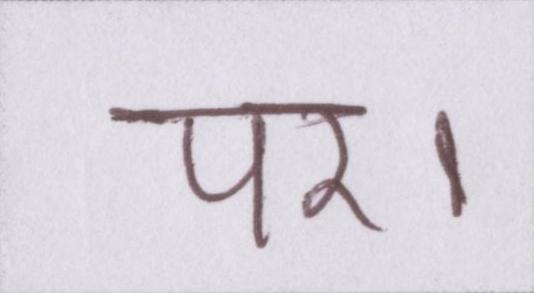 पर।